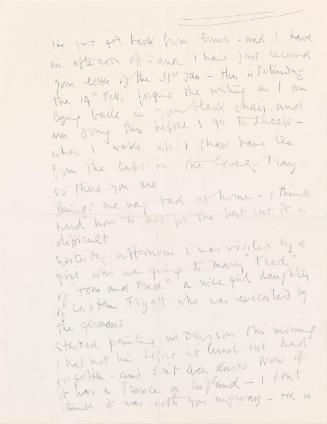 I've just got back from lunch - and I have
an afternoon off - and I have just received
your letter of the 31st Jan - this is Saturday
the 14th Feb. forgive the writing as I am
lying back in your black chair - and
am doing this before I go to sleep -
when I wake up I shall have tea
from the cups on the Tray -
so there you are
Things are very bad at home - I think
hard how to act for the best but it is
difficult
yesterday afternoon I was visited by a
girl who was going to marry "Fred"
of "Tom and Fred" a nice girl daughter
of Captain Fryatt who was executed by
the Germans
started painting Mr Davison this morning
I had met him before at lunch - but had
forgotten - and don't even know now if
it was in France or England - I don't
think it was with you anyway - He is